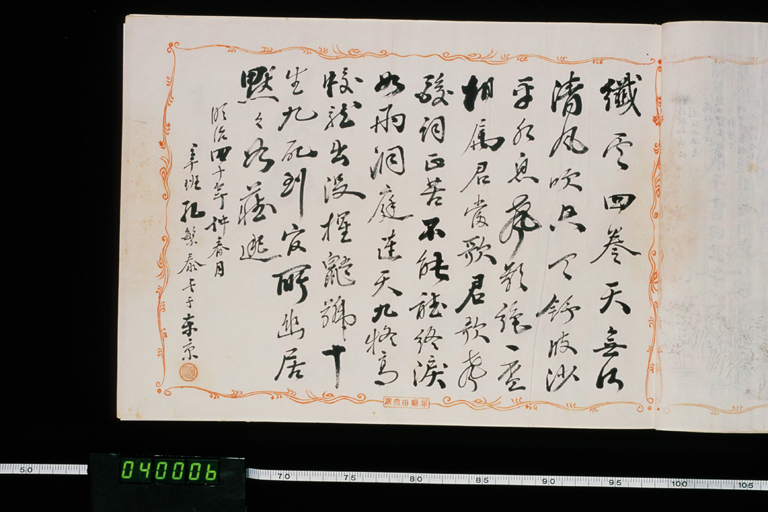 纖雲四卷天無河
清風吹空月舒波沙
平水息聲影絕一盃
相屬君當歌君歌聲
酸詞正苦不能聽終淚
如雨洞庭連天九疑高
蛟龍出沒猩鼯號十
生九死到官所幽居
默々如藏逃
明治四十年仲春月
孔繁泰 東京
040006
50 70 75 80 85 90 95 100 105